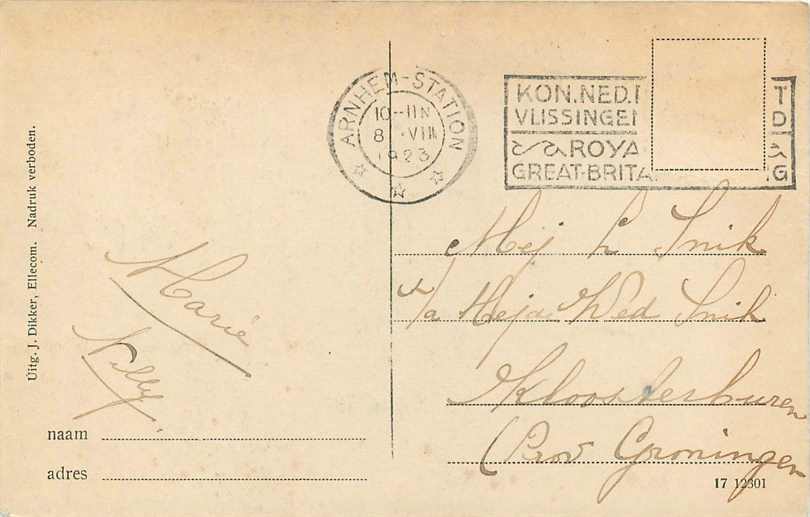 Uitg. J. Dikker, Ellecom. Nadruk verboden.
ARNHEM-STATION
10-11N
8 .VIII
1923
KON.NED.
VLISSINGEN
ROYA
GREAT-BRITA
T
D
G
Marie
Nelly.
naam
adres
Mej L Snik
c/a Meja Wed Snik
Kloosterburen
(Prov Groningen
17 12301